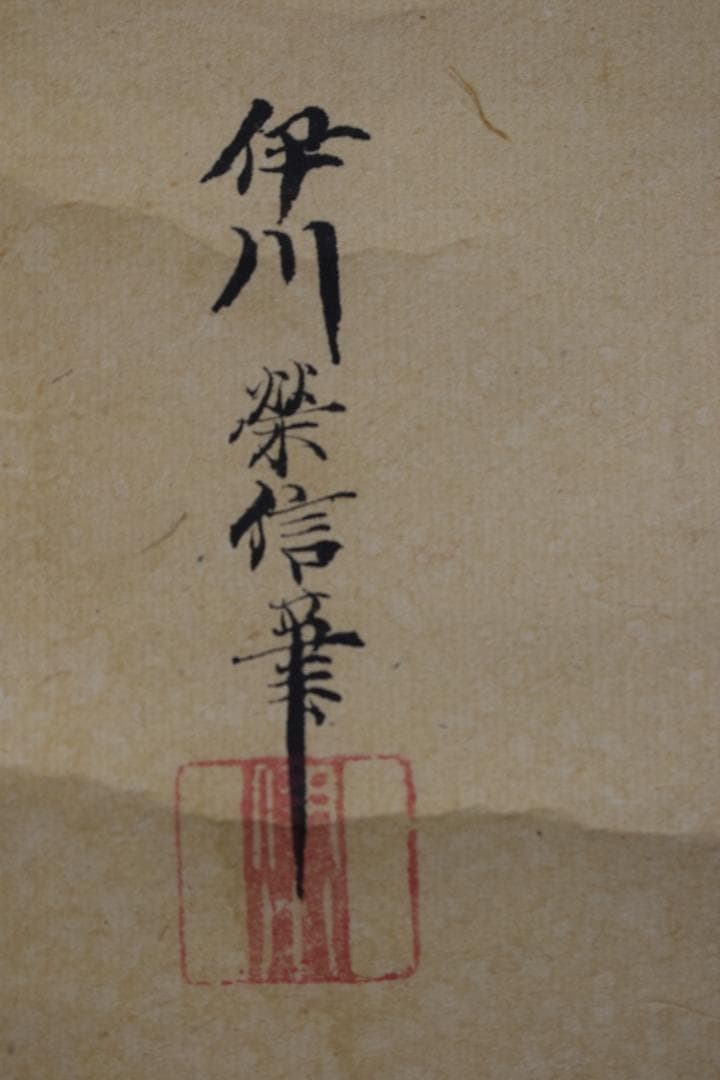 伊川榮信筆